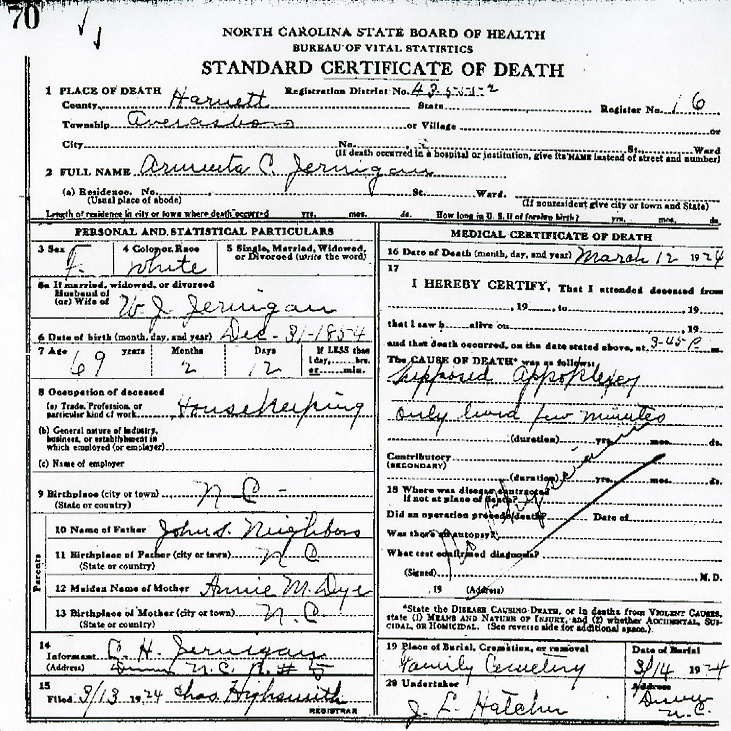 70
NORTH CAROLINA STATE BOARD OF HEALTH
BUREAU OF VITAL STATISTICS
STANDARD CERTIFICATE OF DEATH
1 PLACE OF DEATH Registration District No. 43-5552
County Harnett State Register No. 16
Township Averasboro or Village or
City No. St. Ward
(If death occurred in a hospital or institution, give its NAME instead of street and number)
2 FULL NAME Armenta C. Jernigan
(a) Residence. No. St. Ward.
(Usual place of abode) (If nonresident give city or town and State)
Length of residence in city or town where death occurred yrs. mos. ds. How long in U. S. if of foreign birth? yrs. mos. ds.
PERSONAL AND STATISTICAL PARTICULARS
3 Sex 4 Color or Race 5 Single, Married, Widowed,
or Divorced (write the word)
F. White
5a If married, widowed, or divorced
Husband of
(or) Wife of W J Jernigan
6 Date of birth (month, day, and year) Dec - 31-1854
7 Age years Months Days If LESS than
1 day, hrs.
or min.
69 2 12
8 Occupation of deceased
(a) Trade, Profession, or
particular kind of work Housekeeping
(b) General nature of industry,
business, or establishment in
which employed (or employer)
(c) Name of employer
9 Birthplace (city or town) N-C-
(State or country)
Parents
10 Name of Father John S. Neighbors
11 Birthplace of Father (city or town) N C
(State or country)
12 Maiden Name of Mother Annie M. Dye
13 Birthplace of Mother (city or town) N.C.
(State or country)
14
Informant C. H. Jernigan
(Address) Dunn N.C. R. #5
15
Filed 3/13 1924 Chas Highsmith
REGISTRAR
MEDICAL CERTIFICATE OF DEATH
16 Date of Death (month, day, and year) March 12 1924
17
I HEREBY CERTIFY, That I attended deceased from
, 19 , to , 19
that I saw h alive on , 19
and that death occurred, on the date stated above, at 3-45 P. m.
The CAUSE OF DEATH* was as follows:
Supposed Appoplexy
only lived few minutes
(duration) yrs. mos. ds.
Contributory
(SECONDARY)
(duration) yrs. mos. ds.
18 Where was disease contracted
if not at place of death?
Did an operation precede death? Date of
Was there an autopsy?
What test confirmed diagnosis?
No Physician
(Signed) M. D.
, 19 (Address)
*State the DISEASE CAUSING DEATH, or in deaths from VIOLENT CAUSES,
state (1) MEANS AND NATURE OF INJURY, and (2) whether ACCIDENTAL, SUI-
CIDAL, or HOMICIDAL. (See reverse side for additional space.)
19 Place of Burial, Cremation, or removal Date of Burial
Family Cemetery 3/14 1924
20 Undertaker Address
J. L. Hatcher Dunn
N.C.